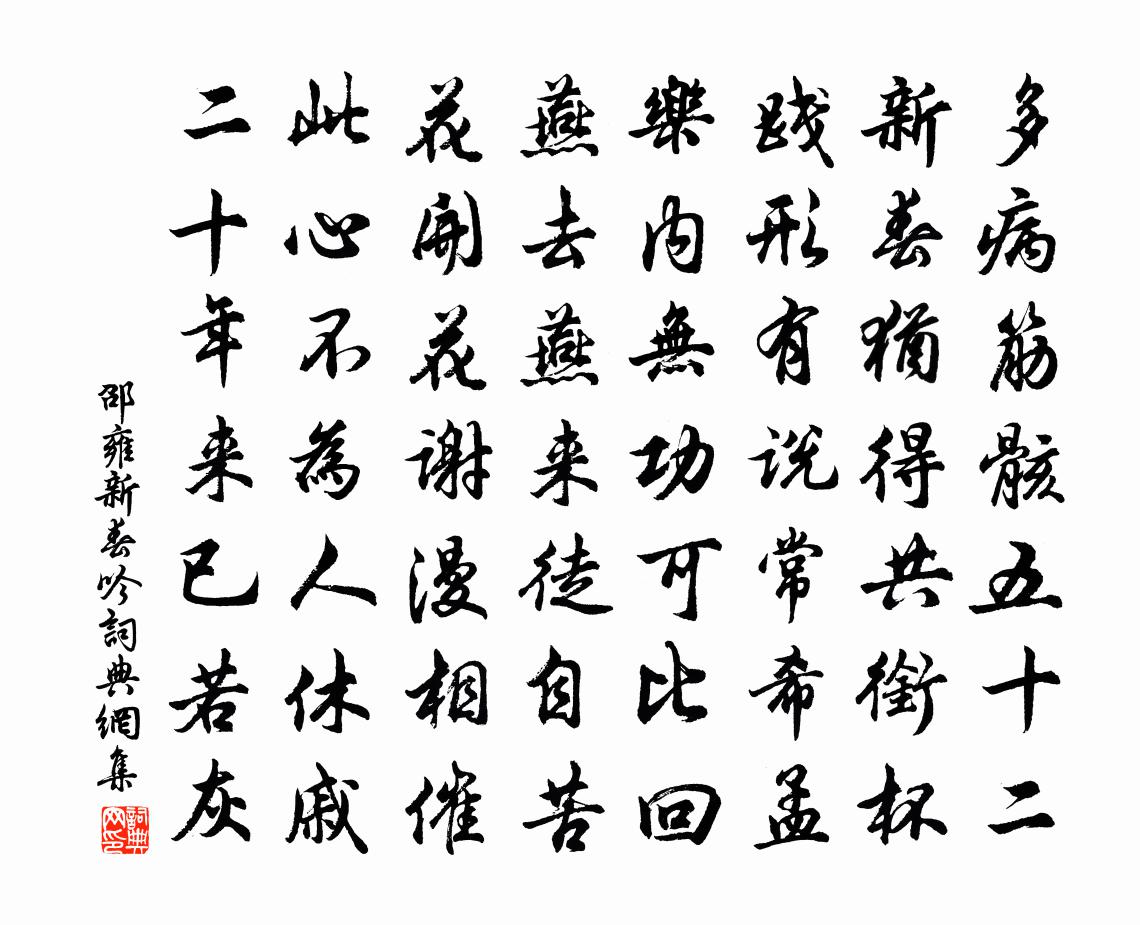 多病筋骸五十二
新春猶得共銜杯
踐形有說常希孟
樂内無功可比回
燕去燕来徒自苦
花開花謝漫相催
此心不為人休戚
二十年来已若灰
邵雍新春吟詞典網集
詞典网印